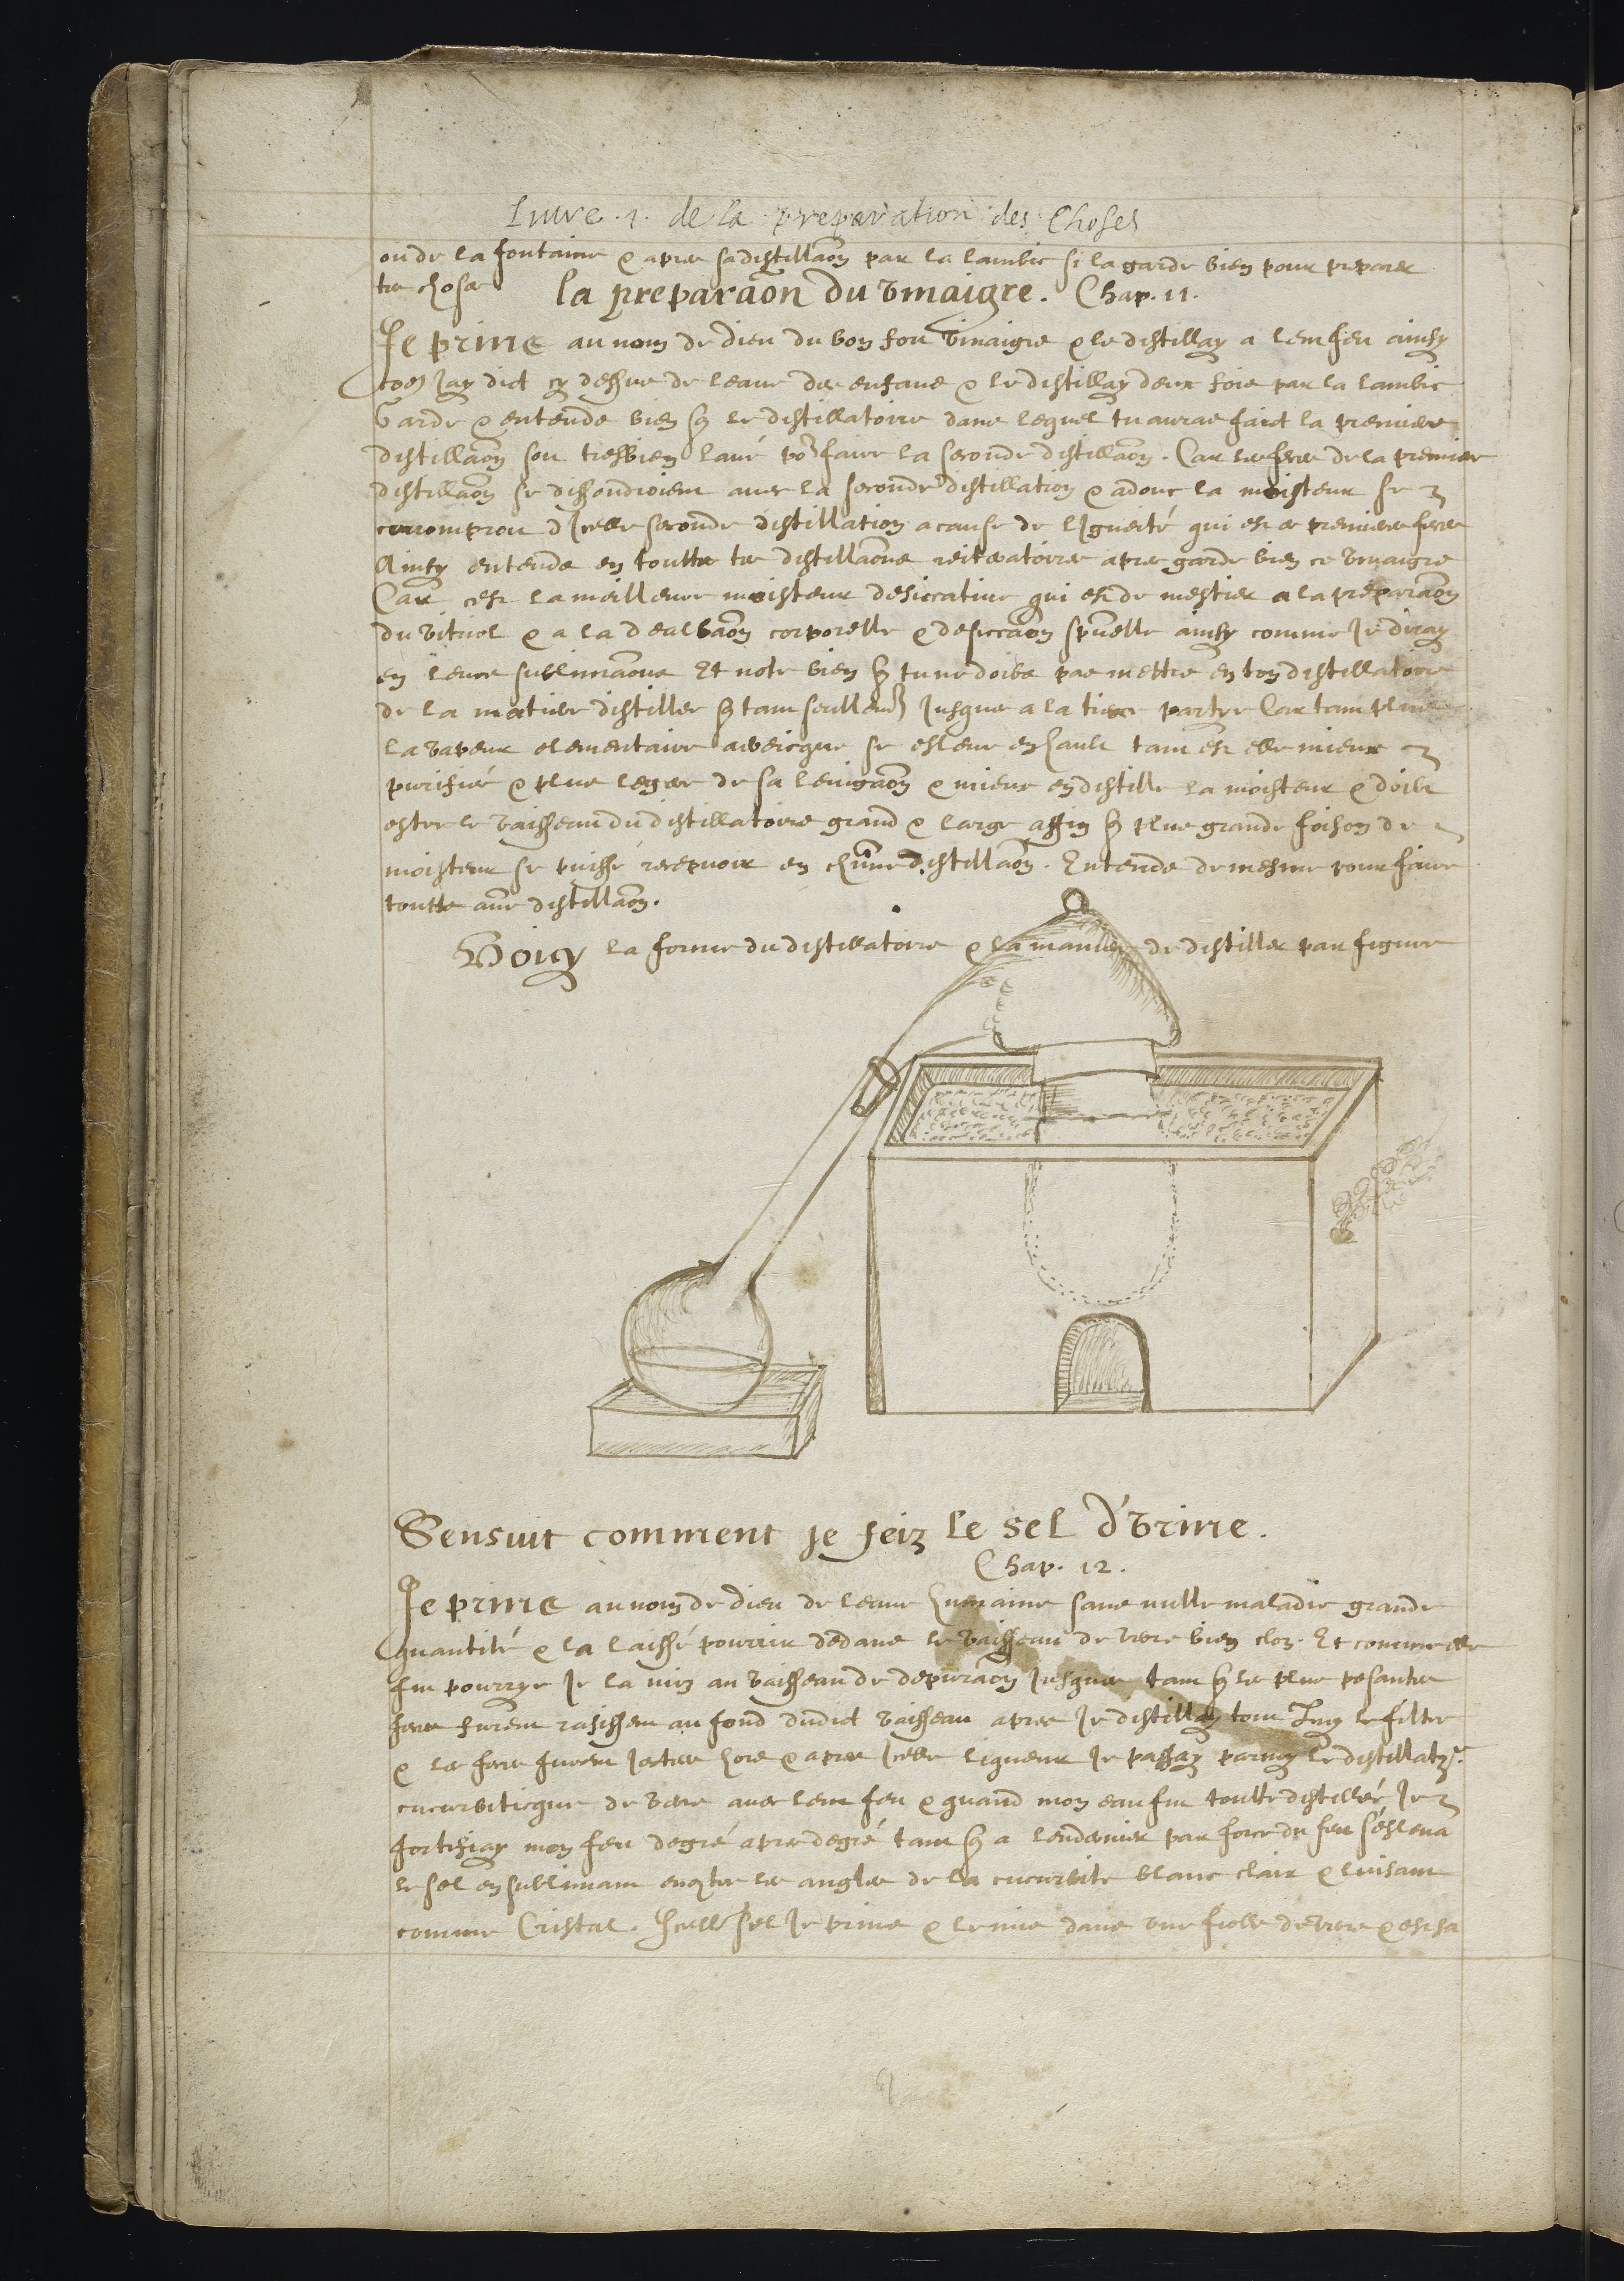 Livre .1. de la preparation des Choses
ou de la fontaine & apres sa distillaon par la lambic si la garde bien pour preparer
tes choses la preparaon du vinaigre. Chap. 11.
Je prins au nom de dieu du bon fort vinaigre & le distillay a lent feu ainsy
coe Jay dict cy dessus de leaue des enfans & le distillay deux fois par la lambic
Garde & entends bien q le distillatoire dans lequel tu auras faict la premiere
distillaon soit tresbien laué po faire la seconde distillaon. Car les feces de la premiere
distillaon se dissoudroient auec la seconde distillation & adonc la moisteur se
corromproit dIcelle seconde distillation a cause de lIgneité qui est es premieres feces
Ainsy entends en touttes tes distillaons reiteratoires apres garde bien ce vinaigre
Car cest la meilleure moisteur desiccatiue qui est de mestier a la preparaon
du vitriol & a la dealbaon corporelle & desiccaon spuelle ainsy comme Je diray
en leurs sublimaons Et note bien q tu ne doibs pas mettre en ton distillatoire
de la matiere distiller q tant seullemt Jusques a la tierce partye Car tant plus
la vapeur elementaire aereicque se esleue en hault tant est elle mieux
purifiée & plus legere de sa leuigaon & mieux en distille la moisteur & doibt
estre le vaisseau du distillatoire grand & large affin q plus grande foison de
moisteur se puisse recepuoir en chune distillaon. Entends de mesme pour faire
toutte aue distillaon.
Voicy la forme du distillatoire & la maniere de distiller par figure
Sensuit comment je feiz le sel d'Vrine.
Chap. 12.
Je prins au nom de dieu de leaue humaine sans nulle maladie grande
quantité & la laissé pourrir dedans le vaisseau de verre bien clos. Et comme elle
fut pourrye Je la mis au vaisseau de depuraon Jusques tant q les plus pesantes
feces furent rasisses au fond dudict vaisseau apres Je distillay tout par le filtre
& les feces furent Jectees hors & apres Icelle liqueur Je passay parmy le distillatre
cucurbiticque de verre auec lent feu & quand mon eau fut toutte distillée Je
fortifiay mon feu degré apres degré tant q a lendernier par force du feu s'esleua
le sel en sublimant encontre les angles de la cucurbite blanc clair & luisant
comme Cristal. Icelle sel Je prins & le mis dans vne fiolle de verre & est sa